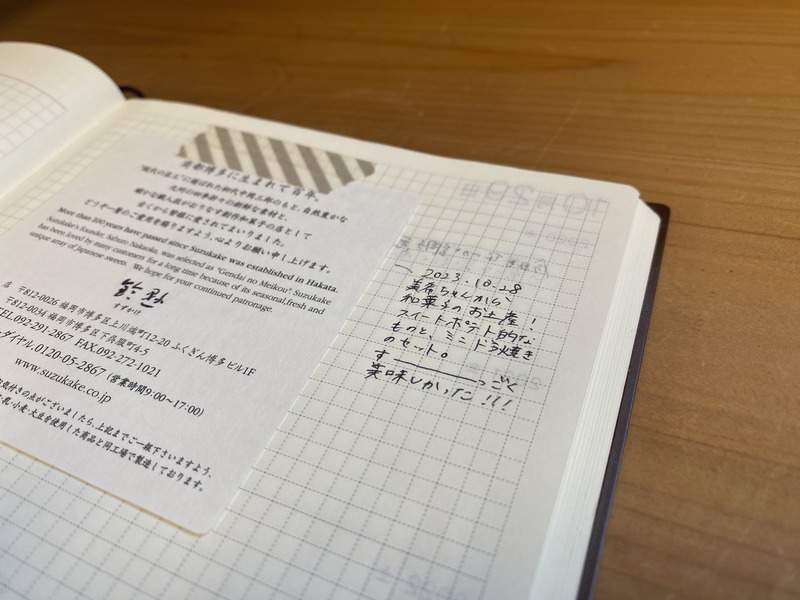 京都博多に生まれて百年。
"現代の名工"に選ばれた初代中岡三郎のもと、自然豊かな
九州の四季折々の新鮮な素材と、
確かな職人技がおりなす創作和菓子の店として
古くから皆様に愛されてまいりました。
どうぞ一層のご愛用を賜りますよう、心よりお願い申し上げます。
More than 100 years have passed since Suzukake was established in Hakata.
Suzukake's founder, Saburo Nakaoka, was selected as "Gendai no Meikou". Suzukake
has been loved by many customers for a long time because of its seasonal, fresh and
unique array of Japanese sweets. We hope for your continued patronage.
鈴懸
すずかけ
店 〒812-0026 福岡市博多区上川端町12-20 ふくぎん博多ビル1F
〒812-0034 福岡市博多区下呉服町4-5
TEL.092-291-2867 FAX.092-272-1021
ダイヤル.0120-05-2867 (営業時間9:00〜17:00)
www.suzukake.co.jp
お気付きの点がございましたら、上記までご一報下さいますよう、
乳・小麦・大豆を使用した商品と同工場で製造しております。
2023.10.28
美希ちゃんから、
和菓子のお土産!
スイートポテト的な
ものと、ミニどら焼き
のセット。
す―――っごく
美味しかった!!!